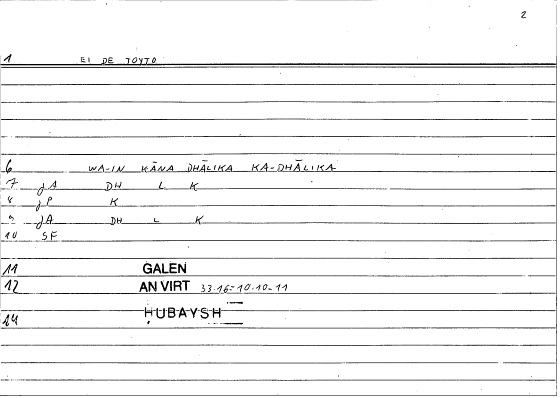 2
1 EI DE TOYTO
6 WA-IN KĀNA DHĀLIKA KA-DHĀLIKA
7 JA DH L K
8 JP K
9 JA DH L K
10 SF
11 GALEN
12 AN VIRT 33.16-10.10-11
14 HUBAYSH